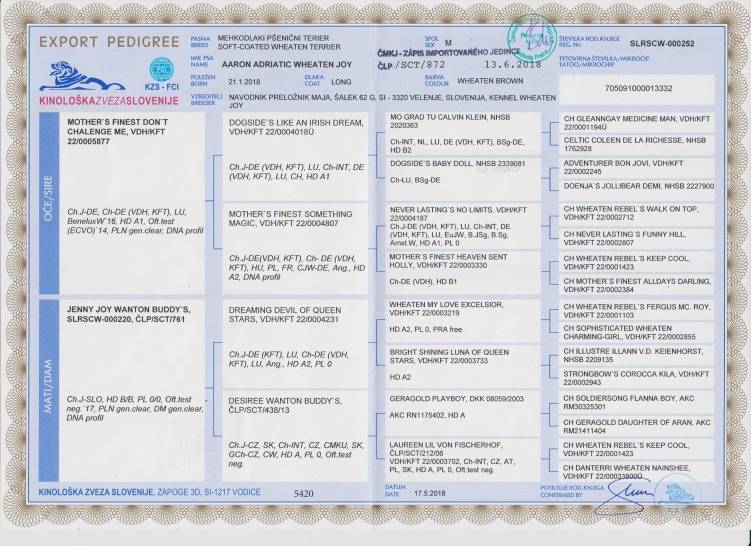 EXPORT PEDIGREE
KZS - FCI
KINOLOŠKAZVEZASLOVENIJE
PASMA
BREED
MEHKODLAKI PŠENIČNI TERIER
SOFT-COATED WHEATEN TERRIER
SPOL
SEX
M
ŠTEVILKA ROD.KNJIGE
REG. No
SLRSCW-000252
ČMKJ - ZÁPIS IMPORTOVANÉHO JEDINCE
ČLP /SCT/872
13.6.2018
IME PSA
NAME
AARON ADRIATIC WHEATEN JOY
TETOVIRNA ŠTEVILKA/MIKROČIP
TATOO/MIKROCHIP
POLEŽEN
BORN
21.1.2018
DLAKA
COAT
LONG
BARVA
COLOUR
WHEATEN BROWN
705091000013332
VZREDITELJ
BREEDER
NAVODNIK PRELOŽNIK MAJA, ŠALEK 62 G, SI - 3320 VELENJE, SLOVENIJA, KENNEL WHEATEN
JOY
OČE/SIRE
MOTHER`S FINEST DON`T
CHALENGE ME, VDH/KFT
22/0005877
Ch.J-DE, Ch-DE (VDH, KFT), LU,
BeneluxW`16, HD A1, Oft.test
(ECVO)`14, PLN gen.clear, DNA profil
DOGSIDE'S LIKE AN IRISH DREAM,
VDH/KFT 22/0004018Ü
Ch.J-DE (VDH, KFT), LU, Ch-INT, DE
(VDH, KFT), LU, CH, HD A1
MOTHER`S FINEST SOMETHING
MAGIC, VDH/KFT 22/0004807
Ch.J-DE(VDH, KFT), Ch- DE (VDH,
KFT), HU, PL, FR, CJW-DE, Ang., HD
A2, DNA profil
MO GRAD TU CALVIN KLEIN, NHSB
2020363
Ch-INT, NL, LU, DE (VDH, KFT), BSg-DE,
HD B2
DOGSIDE`S BABY DOLL, NHSB 2339081
Ch-LU, BSg-DE
NEVER LASTING`S NO LIMITS, VDH/KFT
22/0004187
Ch.J-DE (VDH, KFT), LU, Ch-INT, DE
(VDH, KFT), LU, EuJW, B.JSg, B.Sg,
Amst.W, HD A1, PL 0
MOTHER`S FINEST HEAVEN SENT
HOLLY, VDH/KFT 22/0003330
Ch-DE (VDH), HD B1
CH GLEANNGAY MEDICINE MAN, VDH/KFT
22/0001194Ü
CELTIC COLEEN DE LA RICHESSE, NHSB
1762928
ADVENTURER BON JOVI, VDH/KFT
22/0002245
DOENJA`S JOLLIBEAR DEMI, NHSB 2227900
CH WHEATEN REBEL`S WALK ON TOP,
VDH/KFT 22/0002712
CH NEVER LASTING`S FUNNY HILL,
VDH/KFT 22/0002807
CH WHEATEN REBEL`S KEEP COOL,
VDH/KFT 22/0001423
CH MOTHER`S FINEST ALLDAYS DARLING,
VDH/KFT 22/0002384
MATI/DAM
JENNY JOY WANTON BUDDY'S,
SLRSCW-000220, ČLP/SCT/761
Ch.J-SLO, HD B/B, PL 0/0, Oft.test
neg.`17, PLN gen.clear, DM gen.clear,
DNA profil
DREAMING DEVIL OF QUEEN
STARS, VDH/KFT 22/0004231
Ch.J-DE (KFT), LU, Ch-DE (VDH,
KFT), LU, Ang., HD A2, PL 0
DESIREE WANTON BUDDY'S,
ČLP/SCT/438/13
Ch.J-CZ, SK, Ch-INT, CZ, CMKU, SK,
GCh-CZ, CW, HD A, PL 0, Oft.test
neg.
WHEATEN MY LOVE EXCELSIOR,
VDH/KFT 22/0003219
HD A2, PL 0, PRA free
BRIGHT SHINING LUNA OF QUEEN
STARS, VDH/KFT 22/0003733
HD A2
GERAGOLD PLAYBOY, DKK 08059/2003
AKC RN1175402, HD A
LAUREEN LIL VON FISCHERHOF,
ČLP/SCT/212/06
VDH/KFT 22/0003702, Ch-INT, CZ, AT,
PL, SK, HD A, PL 0, Oft.test neg.
CH WHEATEN REBEL`S FERGUS MC. ROY,
VDH/KFT 22/0001103
CH SOPHISTICATED WHEATEN
CHARMING-GIRL, VDH/KFT 22/0002855
CH ILLUSTRE ILLANN V.D. KEIENHORST,
NHSB 2209135
STRONGBOW`S COROCCA KILA, VDH/KFT
22/0002943
CH SOLDIERSONG FLANNA BOY, AKC
RM30325301
CH GERAGOLD DAUGHTER OF ARAN, AKC
RM21411404
CH WHEATEN REBEL`S KEEP COOL,
VDH/KFT 22/0001423
CH DANTERRI WHEATEN NAINSHEE,
VDH/KFT 22/00033800Ü
KINOLOŠKA ZVEZA SLOVENIJE, ZAPOGE 3D, SI-1217 VODICE
5420
DATUM
DATE
17.5.2018
POTRJUJE ROD.KNJIGA
CONFIRMED BY